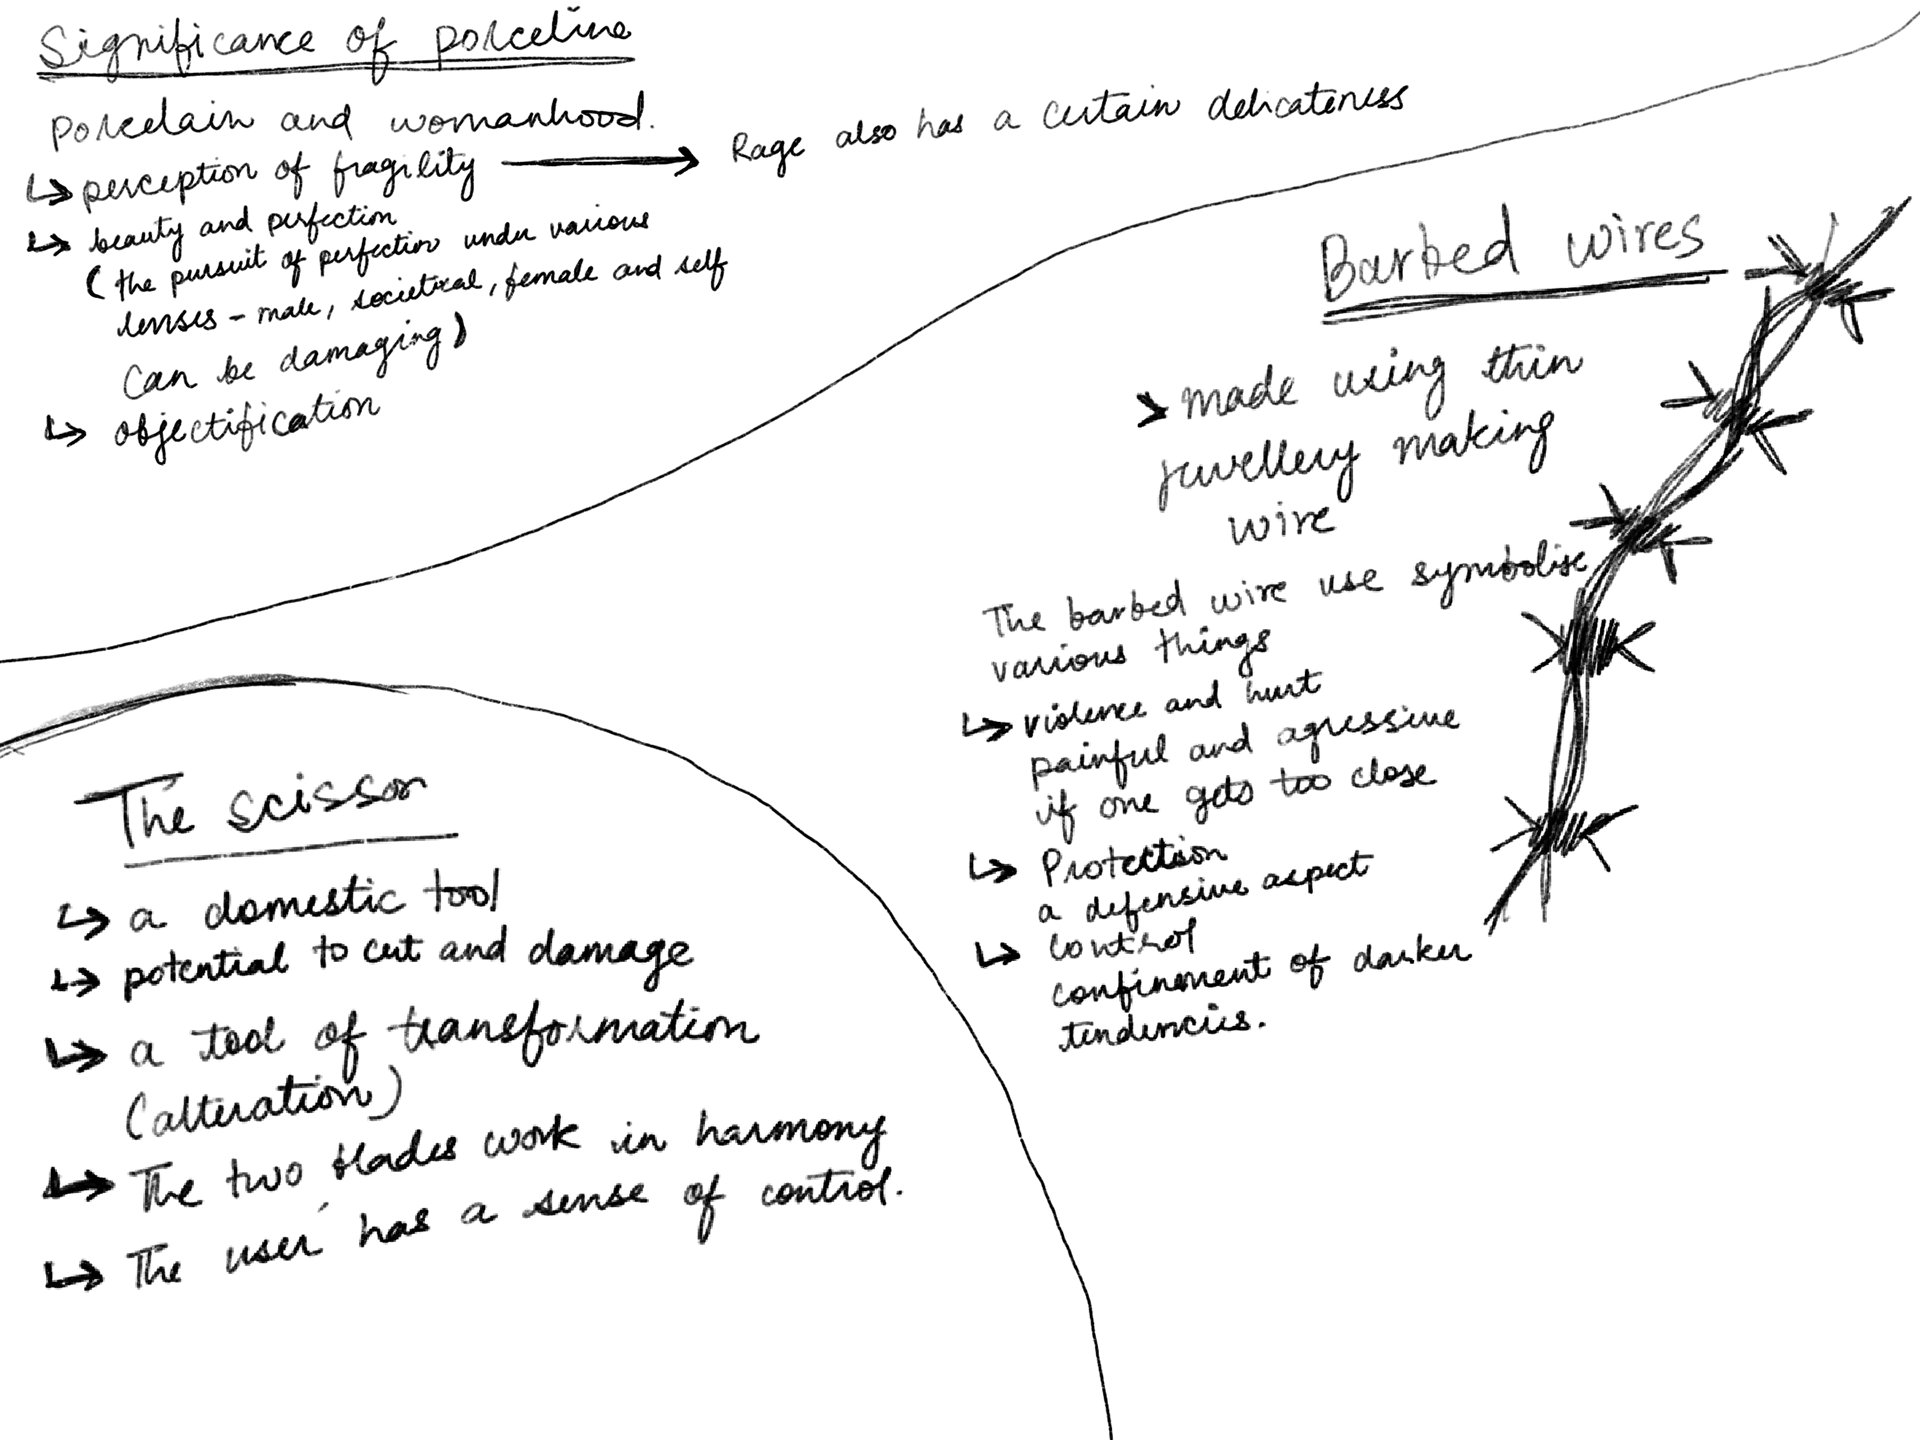 Significance of porceline
Porcelain and womanhood.
↳ perception of fragility ⟶ Rage also has a certain delicateness
↳ beauty and perfection
(the pursuit of perfection under various
lenses - male, societral, female and self
can be damaging)
↳ objectification
Barbed wires
> made using thin
jewellery making
wire
The barbed wire use symbolise
various things
↳ violence and hurt
painful and agressive
if one gets too close
↳ Protection
a defensive aspect
↳ control
confinment of darker
tendencies.
The scissor
↳ a domestic tool
↳ potential to cut and damage
↳ a tool of transformation
(alteration)
↳ The two blades work in harmony
↳ The user has a sense of control.